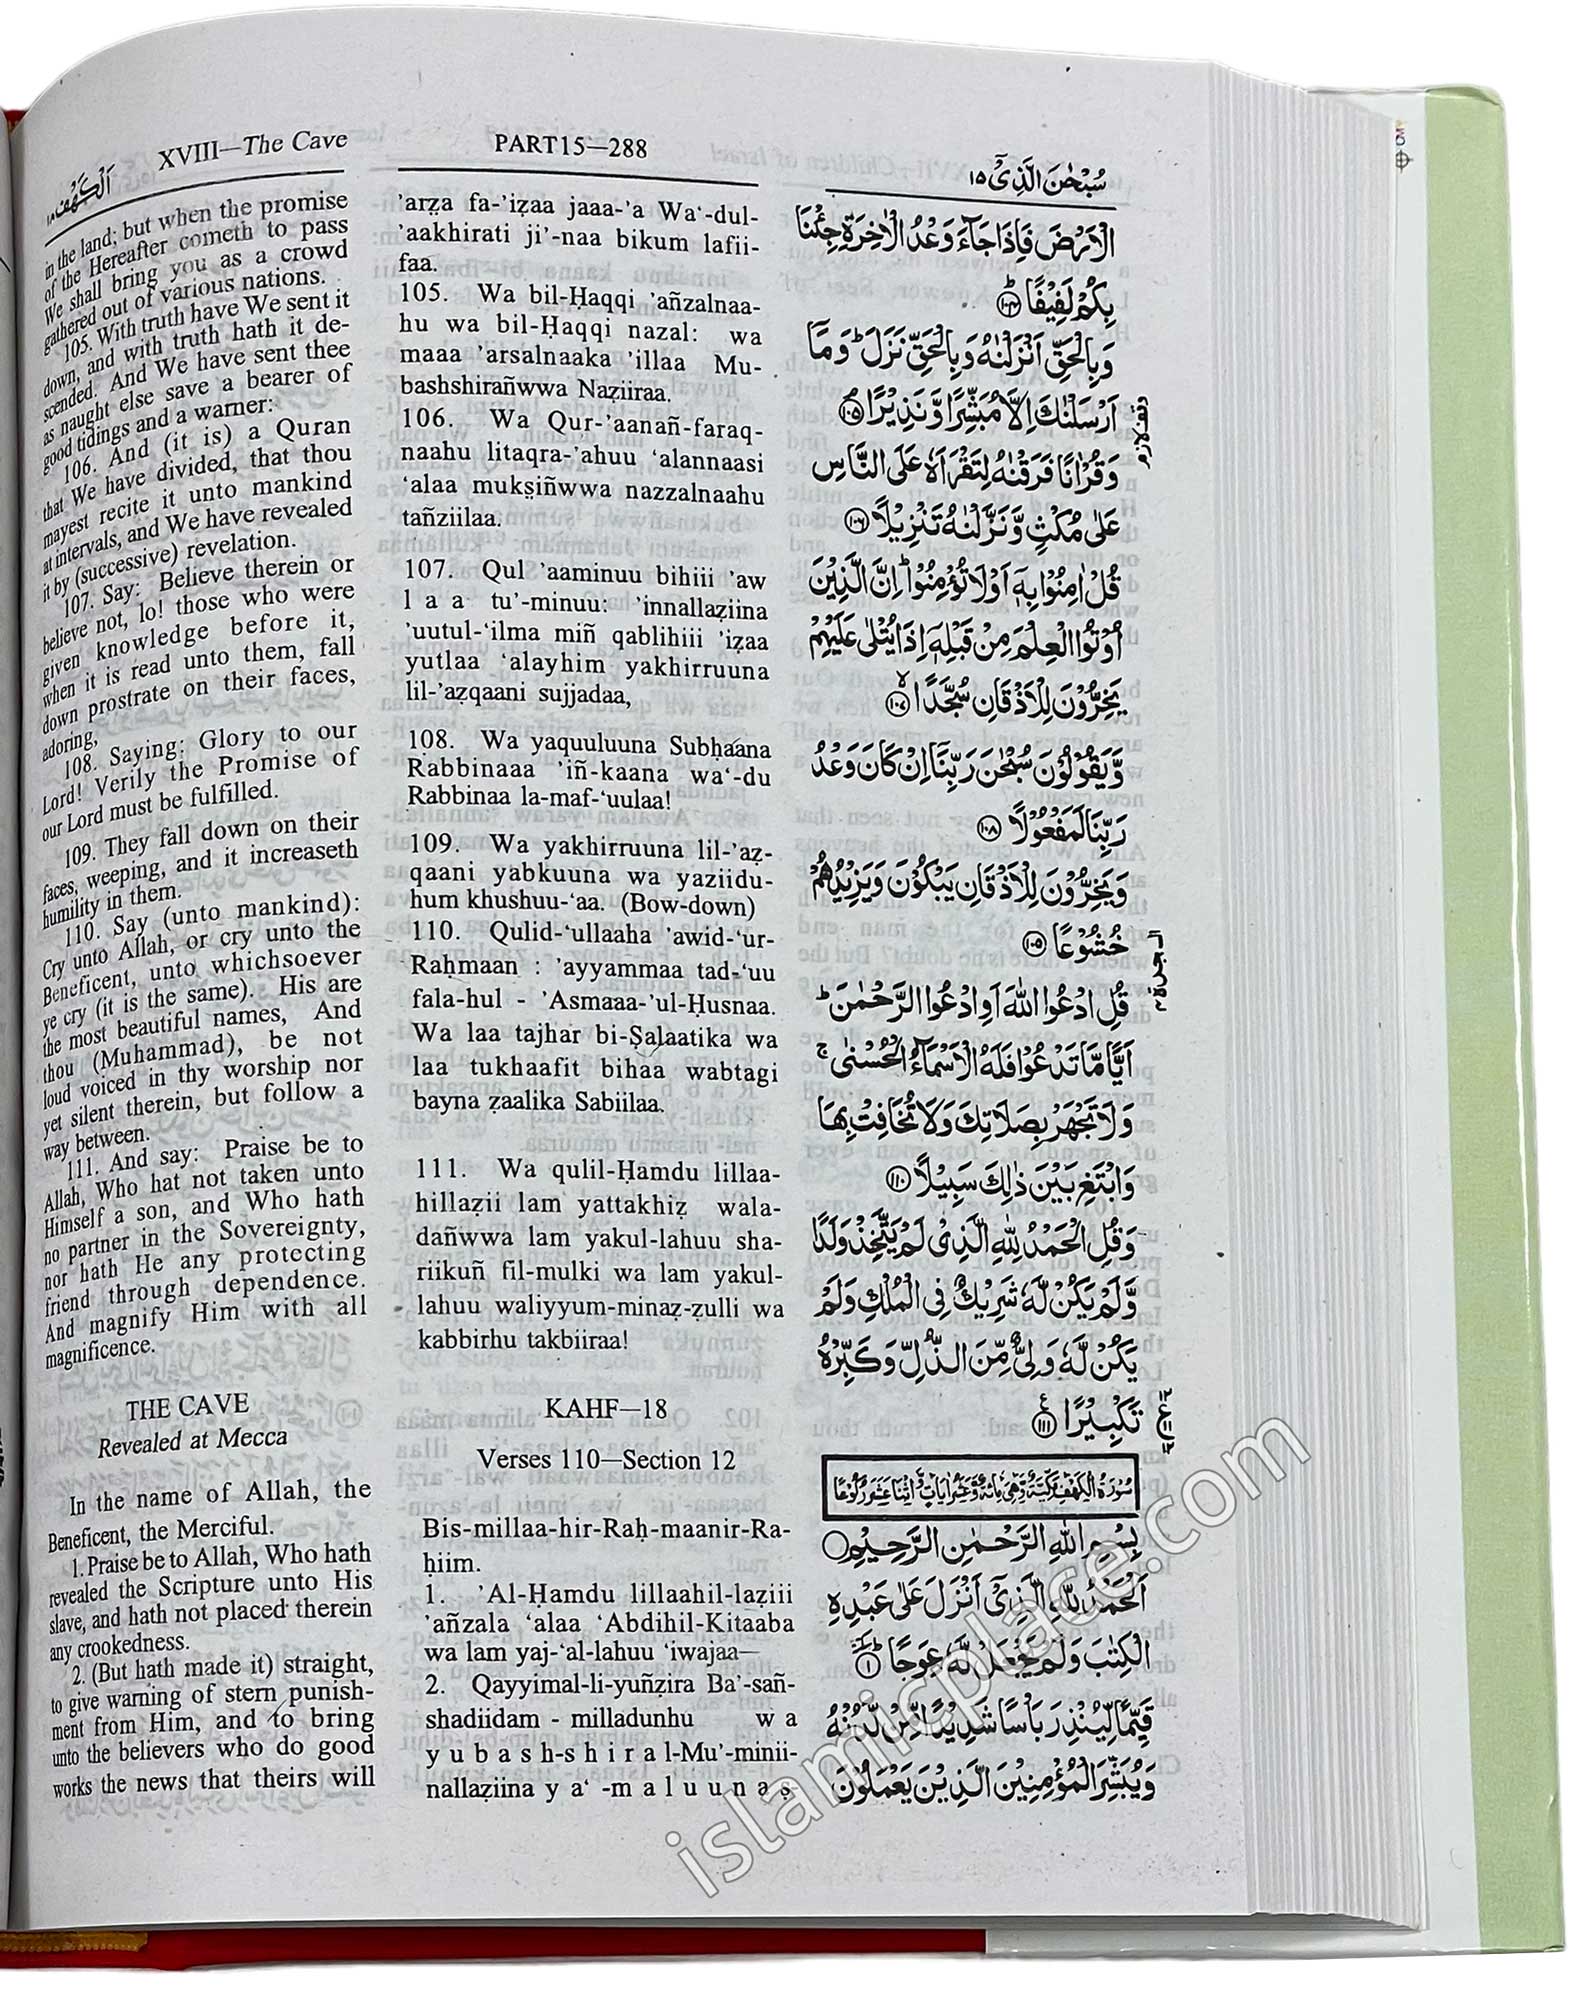 XVIII—The Cave
اَلْكَهْف ١٨
in the land; but when the promise
of the Hereafter cometh to pass
We shall bring you as a crowd
gathered out of various nations.
105. With truth have We sent it
down, and with truth hath it de-
scended. And We have sent thee
as naught else save a bearer of
good tidings and a warner:
106. And (it is) a Quran
that We have divided, that thou
mayest recite it unto mankind
at intervals, and We have revealed
it by (successive) revelation.
107. Say: Believe therein or
believe not, lo! those who were
given knowledge before it,
when it is read unto them, fall
down prostrate on their faces,
adoring,
108. Saying: Glory to our
Lord! Verily the Promise of
our Lord must be fulfilled.
109. They fall down on their
faces, weeping, and it increaseth
humility in them.
110. Say (unto mankind):
Cry unto Allah, or cry unto the
Beneficent, unto whichsoever
ye cry (it is the same). His are
the most beautiful names, And
thou (Muhammad), be not
loud voiced in thy worship nor
yet silent therein, but follow a
way between.
111. And say: Praise be to
Allah, Who hat not taken unto
Himself a son, and Who hath
no partner in the Sovereignty,
nor hath He any protecting
friend through dependence.
And magnify Him with all
magnificence.
THE CAVE
Revealed at Mecca
In the name of Allah, the
Beneficent, the Merciful.
1. Praise be to Allah, Who hath
revealed the Scripture unto His
slave, and hath not placed therein
any crookedness.
2. (But hath made it) straight,
to give warning of stern punish-
ment from Him, and to bring
unto the believers who do good
works the news that theirs will
PART15—288
’arẓa fa-’iẓaa jaaa-’a Wa‘-dul-
’aakhirati ji’-naa bikum lafii-
faa.
105. Wa bil-Ḥaqqi ’añzalnaa-
hu wa bil-Ḥaqqi nazal: wa
maaa ’arsalnaaka ’illaa Mu-
bashshirañwwa Naẓiiraa.
106. Wa Qur-’aanañ-faraq-
naahu litaqra-’ahuu ‘alannaasi
‘alaa mukṣiñwwa nazzalnaahu
tañziilaa.
107. Qul ’aaminuu bihiii ’aw
l a a tu’-minuu: ’innallaẓiina
’uutul-‘ilma miñ qablihiii ’iẓaa
yutlaa ‘alayhim yakhirruuna
lil-’aẓqaani sujjadaa,
108. Wa yaquuluuna Subḥaana
Rabbinaaa ’iñ-kaana wa‘-du
Rabbinaa la-maf-‘uulaa!
109. Wa yakhirruuna lil-’aẓ-
qaani yabkuuna wa yaziidu-
hum khushuu-‘aa. (Bow-down)
110. Qulid-‘ullaaha ’awid-‘ur-
Raḥmaan : ’ayyammaa tad-‘uu
fala-hul - ’Asmaaa-’ul-Ḥusnaa.
Wa laa tajhar bi-Ṣalaatika wa
laa tukhaafit bihaa wabtagi
bayna ẓaalika Sabiilaa.
111. Wa qulil-Ḥamdu lillaa-
hillaẓii lam yattakhiẓ wala-
dañwwa lam yakul-lahuu sha-
riikuñ fil-mulki wa lam yakul-
lahuu waliyyum-minaẓ-ẓulli wa
kabbirhu takbiiraa!
KAHF—18
Verses 110—Section 12
Bis-millaa-hir-Raḥ-maanir-Ra-
ḥiim.
1. ’Al-Ḥamdu lillaahil-laẓiii
’añzala ‘alaa ‘Abdihil-Kitaaba
wa lam yaj-‘al-lahuu ‘iwajaa—
2. Qayyimal-li-yuñẓira Ba’-sañ-
shadiidam - milladunhu w a
y u b a s h-s h i r a l-Mu’-minii-
nallaẓiina y a‘ -m a l u u n a ṣ-
سُبْحٰنَ الَّذِيْٓ ١٥
الْاَرْضَ فَاِذَا جَآءَ وَعْدُ الْاٰخِرَةِ جِئْنَا
بِكُمْ لَفِيْفًا ؕ ١٠٤
وَبِالْحَقِّ اَنْزَلْنٰهُ وَبِالْحَقِّ نَزَلَ ؕ وَمَاۤ
اَرْسَلْنٰكَ اِلَّا مُبَشِّرًا وَّنَذِيْرًا ١٠٥
وَقُرْاٰنًا فَرَقْنٰهُ لِتَقْرَاَهٗ عَلَى النَّاسِ
عَلٰى مُكْثٍ وَّنَزَّلْنٰهُ تَنْزِيْلًا ١٠٦
قُلْ اٰمِنُوْا بِهٖۤ اَوْ لَا تُؤْمِنُوْا ؕ اِنَّ الَّذِيْنَ
اُوْتُوا الْعِلْمَ مِنْ قَبْلِهٖۤ اِذَا يُتْلٰى عَلَيْهِمْ
يَخِرُّوْنَ لِلْاَذْقَانِ سُجَّدًا ۙ ١٠٧
وَّيَقُوْلُوْنَ سُبْحٰنَ رَبِّنَاۤ اِنْ كَانَ وَعْدُ
رَبِّنَا لَمَفْعُوْلًا ١٠٨
وَيَخِرُّوْنَ لِلْاَذْقَانِ يَبْكُوْنَ وَيَزِيْدُهُمْ
خُشُوْعًا ١٠٩
قُلِ ادْعُوا اللّٰهَ اَوِ ادْعُوا الرَّحْمٰنَ ؕ
اَيًّا مَّا تَدْعُوْا فَلَهُ الْاَسْمَآءُ الْحُسْنٰى ۚ
وَلَا تَجْهَرْ بِصَلَاتِكَ وَلَا تُخَافِتْ بِهَا
وَابْتَغِ بَيْنَ ذٰلِكَ سَبِيْلًا ١١٠
وَقُلِ الْحَمْدُ لِلّٰهِ الَّذِيْ لَمْ يَتَّخِذْ وَلَدًا
وَّلَمْ يَكُنْ لَّهٗ شَرِيْكٌ فِى الْمُلْكِ وَلَمْ
يَكُنْ لَّهٗ وَلِيٌّ مِّنَ الذُّلِّ وَكَبِّرْهُ
تَكْبِيْرًا ١١١
سُوْرَةُ الْكَهْفِ مَكِّيَّةٌ وَّهِيَ مِائَةٌ وَّعَشْرُ اٰيَاتٍ وَّاثْنَا عَشَرَ رُكُوْعًا
بِسْمِ اللّٰهِ الرَّحْمٰنِ الرَّحِيْمِ
اَلْحَمْدُ لِلّٰهِ الَّذِيْۤ اَنْزَلَ عَلٰى عَبْدِهِ
الْكِتٰبَ وَلَمْ يَجْعَلْ لَّهٗ عِوَجًا ١
قَيِّمًا لِّيُنْذِرَ بَاْسًا شَدِيْدًا مِّنْ لَّدُنْهُ
وَيُبَشِّرَ الْمُؤْمِنِيْنَ الَّذِيْنَ يَعْمَلُوْنَ
وقف لازم
السجدة
islamicplace.com